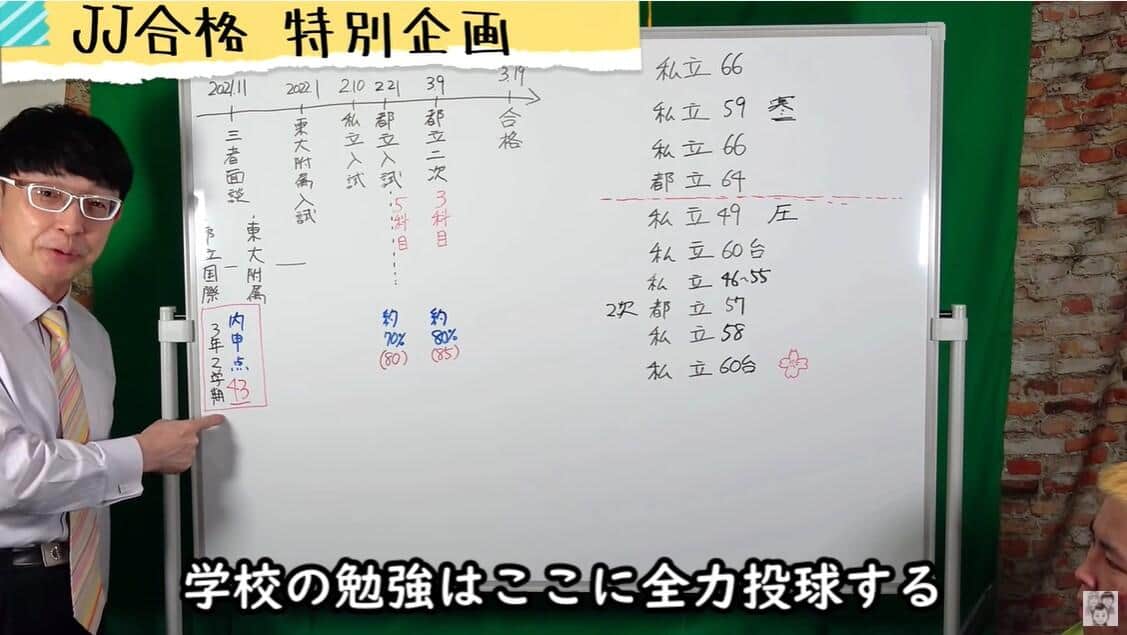 JJ合格 特別企画
2021.11
2022.1
2.10
2.21
3.9
3.19
三者面談
東大附属入試
私立入試
都立入試
都立二次
合格
5科目
3科目
都立国際
東大附属
約
70%
(80)
約
80%
(85)
内申点
43
3年2学期
私立 66
私立 59
私立 66
都立 64
私立 49 圧
私立 60台
私立 46~55
2次 都立 57
私立 58
私立 60台
学校の勉強はここに全力投球する